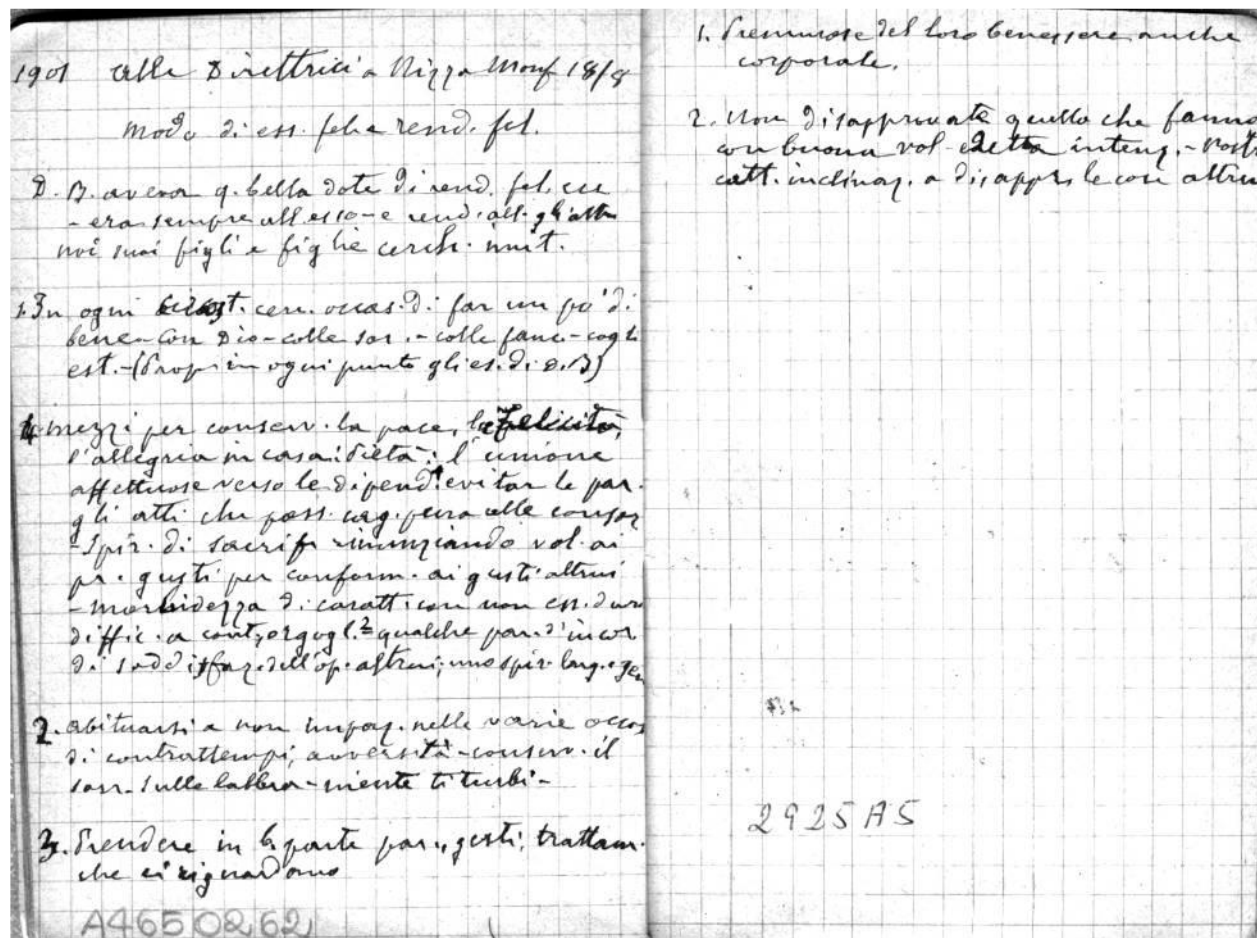 1901 Alle Direttrici a Nizza Monf 18/8
Modo di ess. fel. e rend. fel.
D. B. aveva q. bella dote di rend. fel.
- era sempre all. esso - e rend. all. gli altri
noi suoi figli e figlie cerch. imit.
1. In ogni circost. cerc. occas. di far un po' di
bene - con Dio - colle sor. - colle fanc. - cogli
est. - (Prop. in ogni punto gli es. di D. B)
4. mezzi per conserv. la pace, la felicità,
l'allegria in casa: Pietà; l'unione
affettuose verso le dipend. evitar le par.
gli atti che poss. cag. pena alle consor
- Spir. di sacrif. rinunziando vol. ai
pr. gusti per conform. ai gusti altrui
- morbidezza di caratt. con non ess. dure
diffic. a cont., orgogl. = qualche par. d'incor
di soddisfaz. dell'op. altrui; uno spir. larg. e gen
2. abituarsi a non impaz. nelle varie occas
di contrattempi, avversità - conserv. il
sorr. sulle labbra - niente ti turbi -
3. Prendere in b. parte par., gesti, trattam.
che ci riguardano
A4650262
1. Premurose del loro benessere anche
corporale.
2. Non disapprovate quello che fanno
con buona vol. e retta intenz. - nostr
catt. inclinaz. a disappr. le cose altrui
2925A5